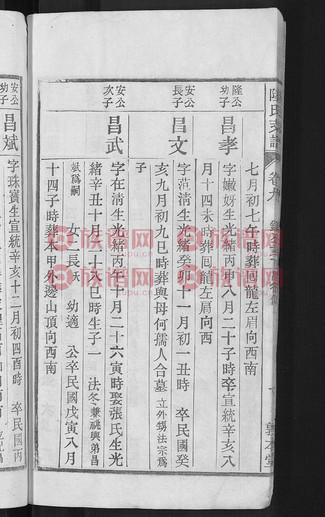 陸氏支譜
卷九
敦本堂
七月初七午時葬回龍左肩向西南
隆公幼子
昌孝
字嫩好生光緒丙申八月二十子時卒宣統辛亥八
月十四未時葬回龍左肩向西
安公長子
昌文
字范清生光緒癸卯十一月初一丑時 卒民國癸
亥九月初九巳時葬與母何孺人合墓立外甥法宗爲
子
安公次子
昌武
字在清生光緒丙午十月二十六寅時娶張氏生光
緒辛丑十月二十八巳時生子一 法冬兼祧與弟昌
斌爲嗣 女二長殀 幼適 公卒民國戊寅八月
十四子時葬木甲外邊山頂向西南
安公幼子
昌斌
字珠寶生宣統辛亥十二月初四酉時 卒民國丙